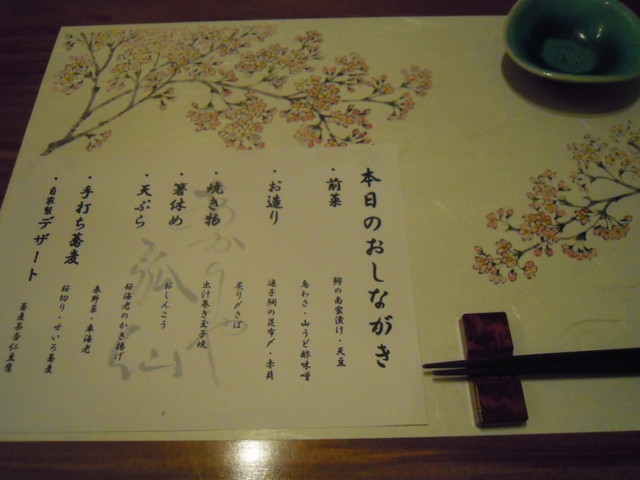 本日のおしながき
・前菜
鯵の南蛮漬け・天豆
鳥わさ・山うど酢味噌
・お造り
連子鯛の昆布〆・赤貝
・焼き物
炙り〆さば
出汁巻き玉子焼
・箸休め
おしんこう
・天ぷら
桜海老のかき揚げ
春野菜・車海老
・手打ち蕎麦
桜切り・せいろ蕎麦
・自家製デザート
蕎麦茶杏仁豆腐
狐仙